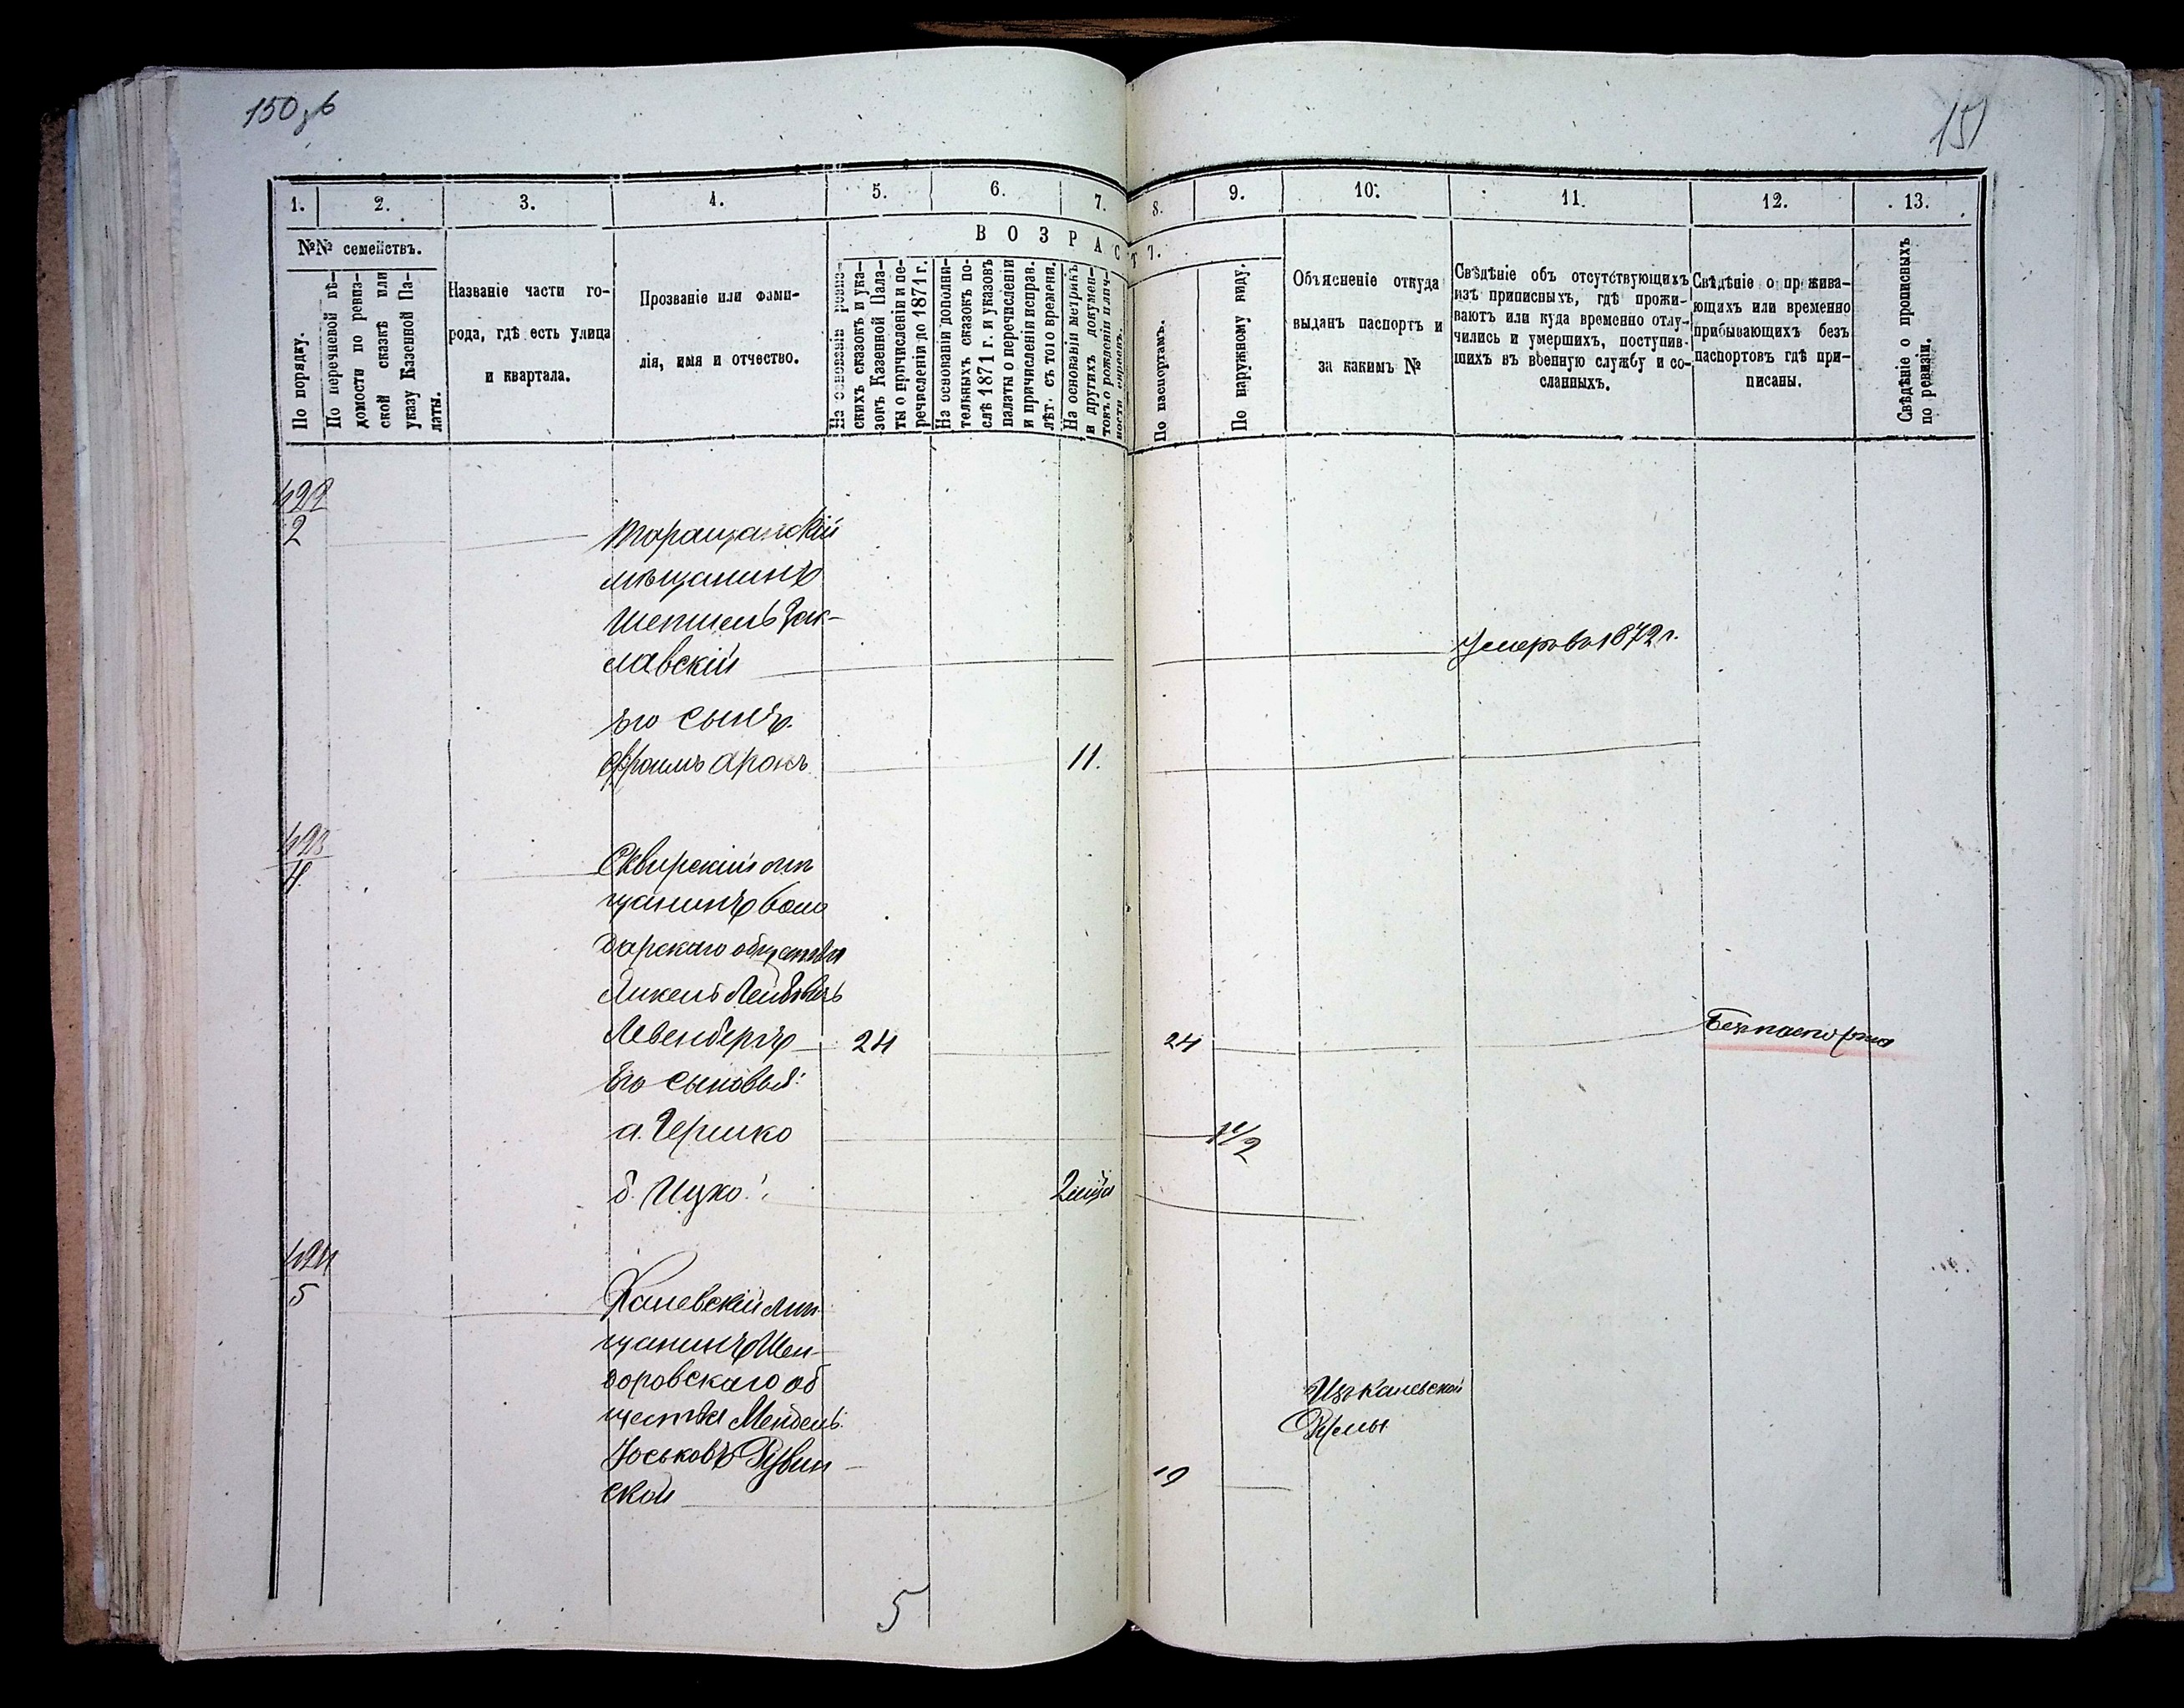 150 об
151
1. 2. 3. 4. 5. 6. 7. 8. 9. 10. 11. 12. 13.
№№ семействъ.
В О З Р А С Т Ъ.
По порядку.
По перечневой вѣ-
домости по ревиз-
ской сказкѣ или
указу Казенной Па-
латы.
Названіе части го-
рода, гдѣ есть улица
и квартала.
Прозваніе или фами-
лія, имя и отчество.
На основаніи ревиз-
скихъ сказокъ и ука-
зовъ Казенной Пала-
ты о причисленіи и пе-
речисленіи до 1871 г.
На основаніи дополни-
тельныхъ сказокъ по-
слѣ 1871 г. и указовъ
палаты о перечисленіи
и причисленіи исправ.
лѣт. съ того времени.
На основаніи метрикъ
и другихъ докумен-
товъ о рожденіи
По паспортамъ.
По наружному виду.
Объясненіе откуда
выданъ паспортъ и
за какимъ №
Свѣдѣніе объ отсутствующихъ
изъ приписныхъ, гдѣ прожи-
ваютъ или куда временно отлу-
чились и умершихъ, поступив-
шихъ въ военную службу и со-
сланныхъ.
Свѣдѣніе о прожива-
ющихъ или временно
прибывающихъ безъ
паспортовъ гдѣ при-
писаны.
Свѣдѣніе о прописныхъ
по ревизіи.
422
2
Таращанскій
мѣщанинъ
Шепшель Зас-
лавскій
Умеръ въ 1872 г.
Его сынъ
Фроимъ Аронъ 11.
423
4
Сквирскій мѣ
щанинъ Воло
дарскаго общества
Янкель Лейбовъ
Левенбергъ 24 24 Безпаспорта
Его сыновья:
а. Гершко 1 1/2
б. Ицко. 2 мѣся
424
5
Каневскій мѣ
щанинъ Шен-
доровскаго об
щества Мендель
Юськовъ Рувин
ской
19
Изъ Каневской
Думы
5